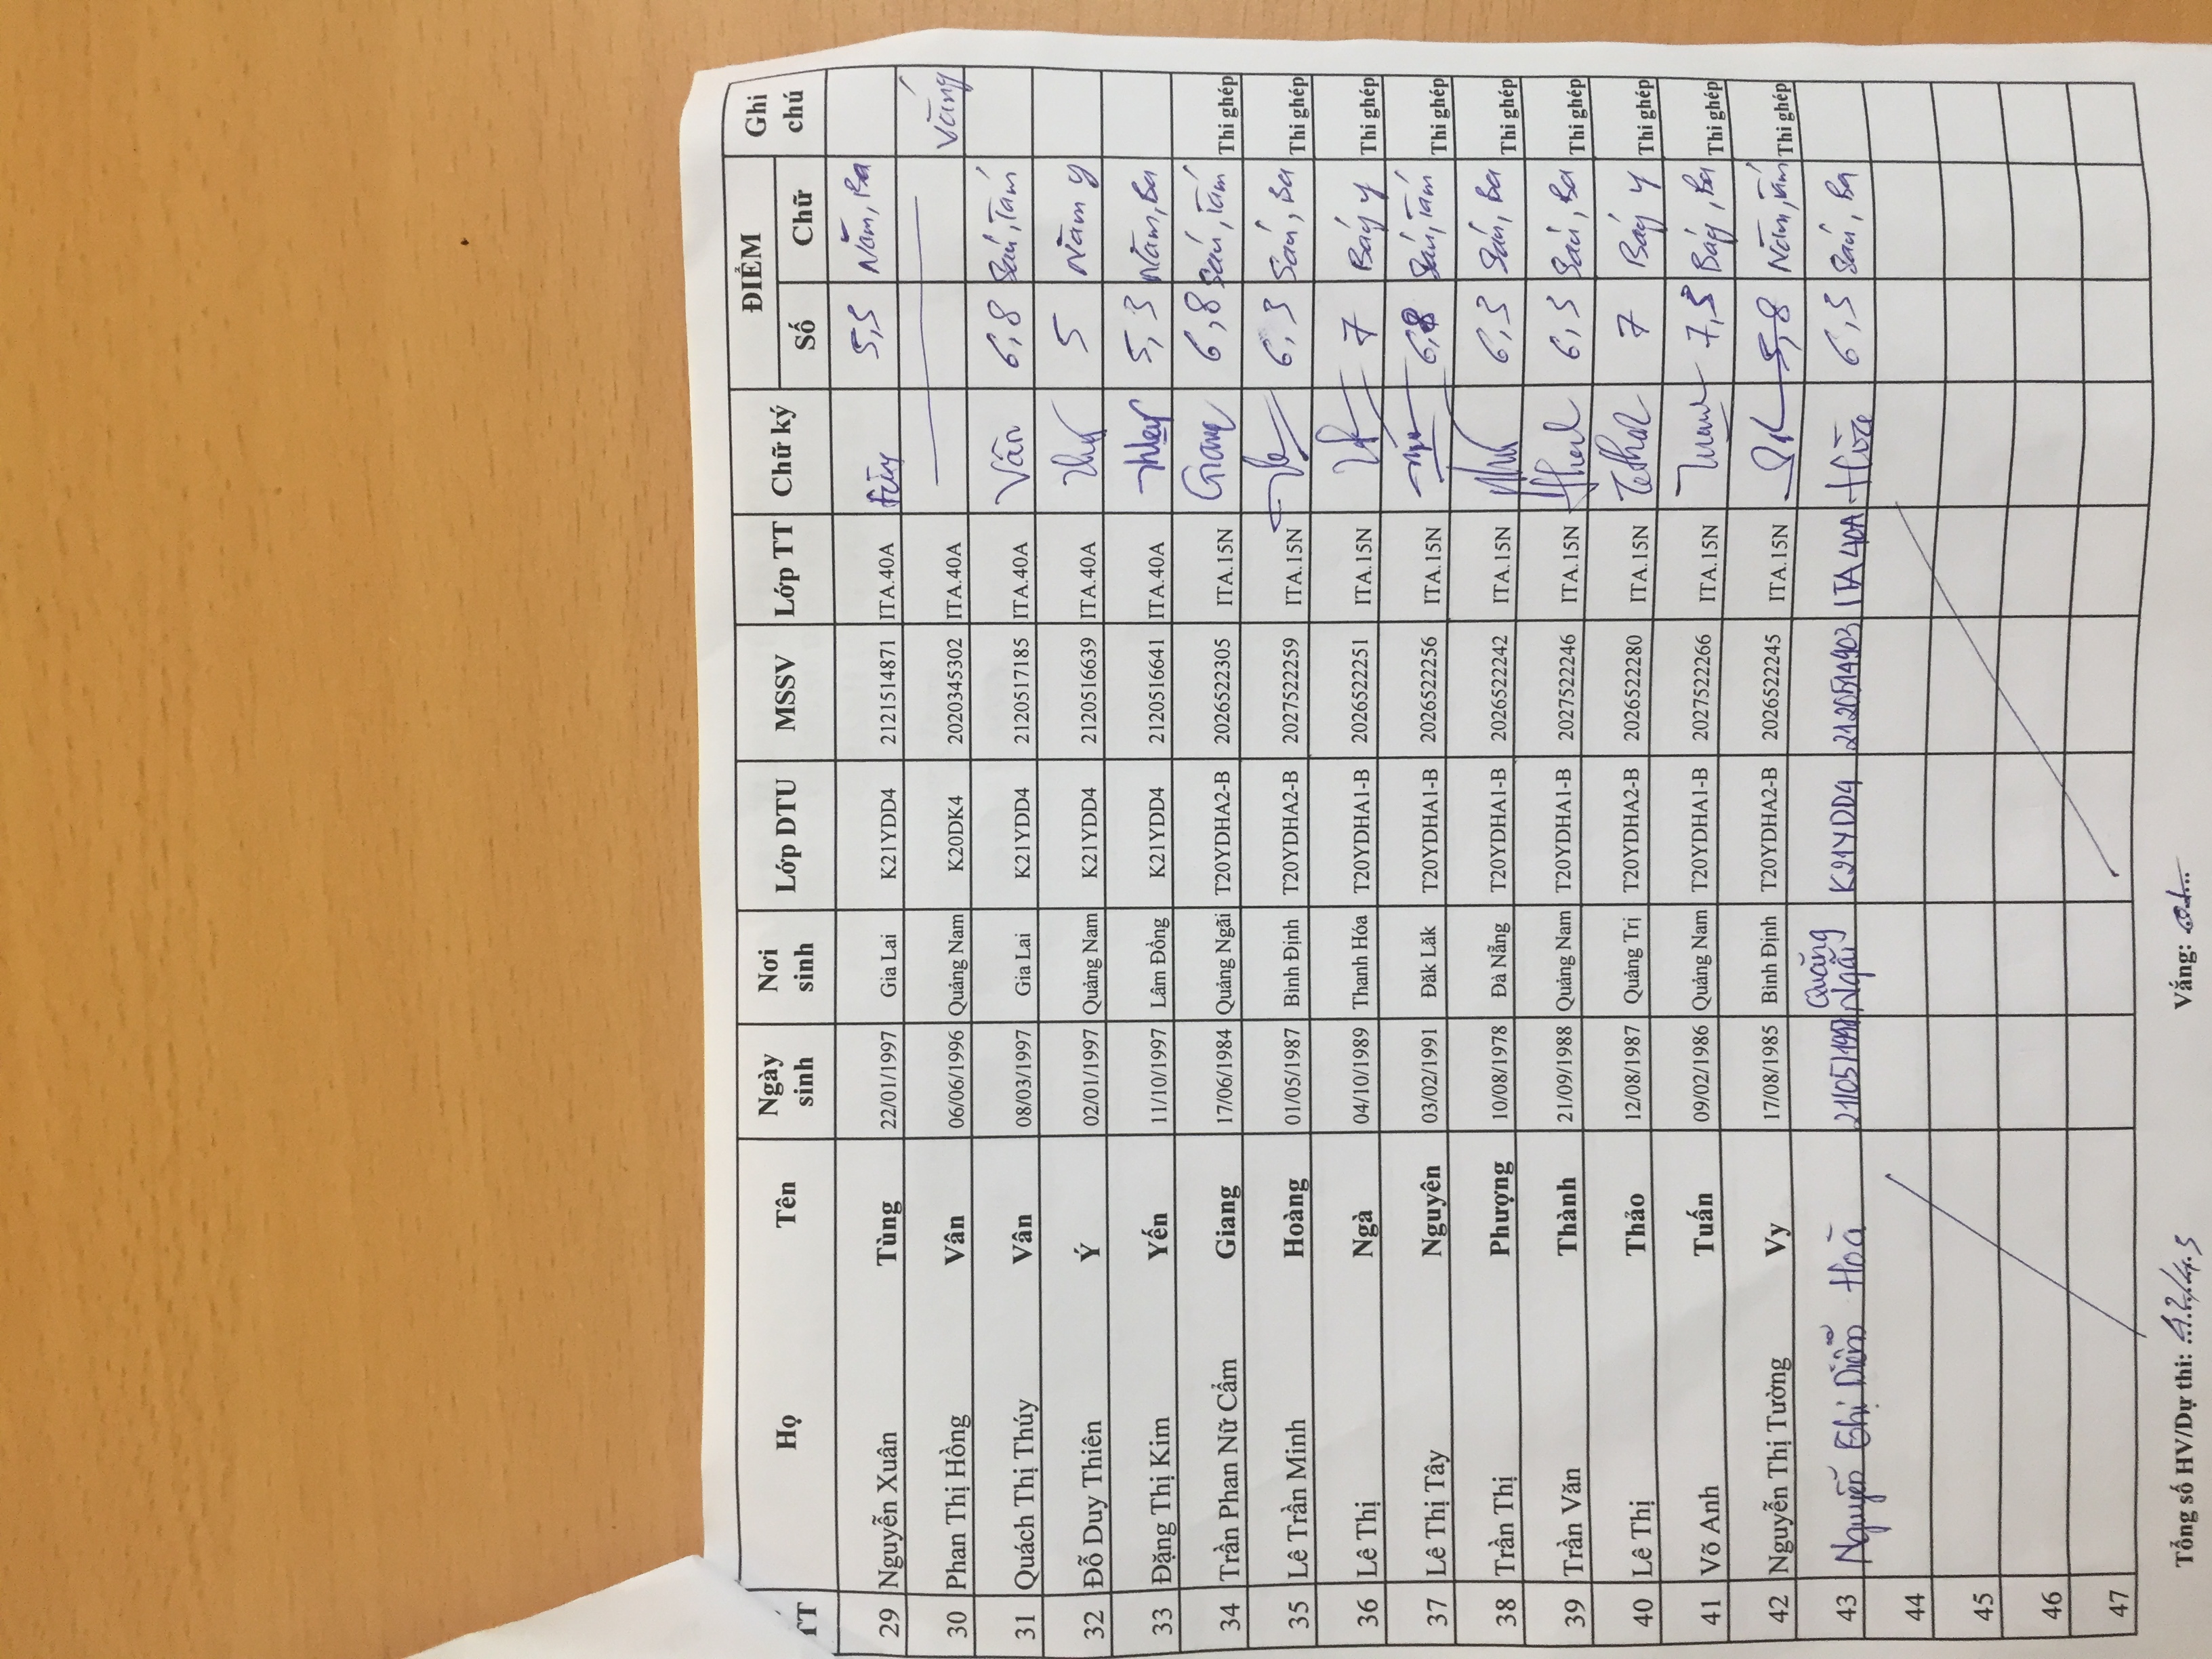 TT Họ Tên Ngày sinh Nơi sinh Lớp DTU MSSV Lớp TT Chữ ký ĐIỂM Số Chữ Ghi chú
29 Nguyễn Xuân Tùng 22/01/1997 Gia Lai K21YDD4 2121514871 ITA.40A Tùng 5,3 Năm, Ba
30 Phan Thị Hồng Vân 06/06/1996 Quảng Nam K20DK4 2020345302 ITA.40A Vắng
31 Quách Thị Thúy Vân 08/03/1997 Gia Lai K21YDD4 2120517185 ITA.40A Vân 6,8 Sáu, Tám
32 Đỗ Duy Thiên Ý 02/01/1997 Quảng Nam K21YDD4 2120516639 ITA.40A 5 Năm y
33 Đặng Thị Kim Yến 11/10/1997 Lâm Đồng K21YDD4 2120516641 ITA.40A 5,3 Năm, Ba
34 Trần Phan Nữ Cẩm Giang 17/06/1984 Quảng Ngãi T20YDHA2-B 2026522305 ITA.15N Giang 6,8 Sáu, Tám Thi ghép
35 Lê Trần Minh Hoàng 01/05/1987 Bình Định T20YDHA2-B 2027522259 ITA.15N 6,3 Sáu, Ba Thi ghép
36 Lê Thị Ngà 04/10/1989 Thanh Hóa T20YDHA1-B 2026522251 ITA.15N 7 Bảy y Thi ghép
37 Lê Thị Tây Nguyên 03/02/1991 Đăk Lăk T20YDHA1-B 2026522256 ITA.15N 6,8 Sáu, Tám Thi ghép
38 Trần Thị Phượng 10/08/1978 Đà Nẵng T20YDHA1-B 2026522242 ITA.15N 6,3 Sáu, Ba Thi ghép
39 Trần Văn Thành 21/09/1988 Quảng Nam T20YDHA1-B 2027522246 ITA.15N 6,3 Sáu, Ba Thi ghép
40 Lê Thị Thảo 12/08/1987 Quảng Trị T20YDHA2-B 2026522280 ITA.15N 7 Bảy y Thi ghép
41 Võ Anh Tuấn 09/02/1986 Quảng Nam T20YDHA1-B 2027522266 ITA.15N 7,3 Bảy, Ba Thi ghép
42 Nguyễn Thị Tường Vy 17/08/1985 Bình Định T20YDHA2-B 2026522245 ITA.15N 5,8 Năm, Tám Thi ghép
43 Nguyễn Thị Diễm Hoà 21/05/1997 Quảng Ngãi K21YDD4 2120514903 ITA 40A Hòa 6,3 Sáu, Ba
44
45
46
47
Tổng số HV/Dự thi: Vắng: